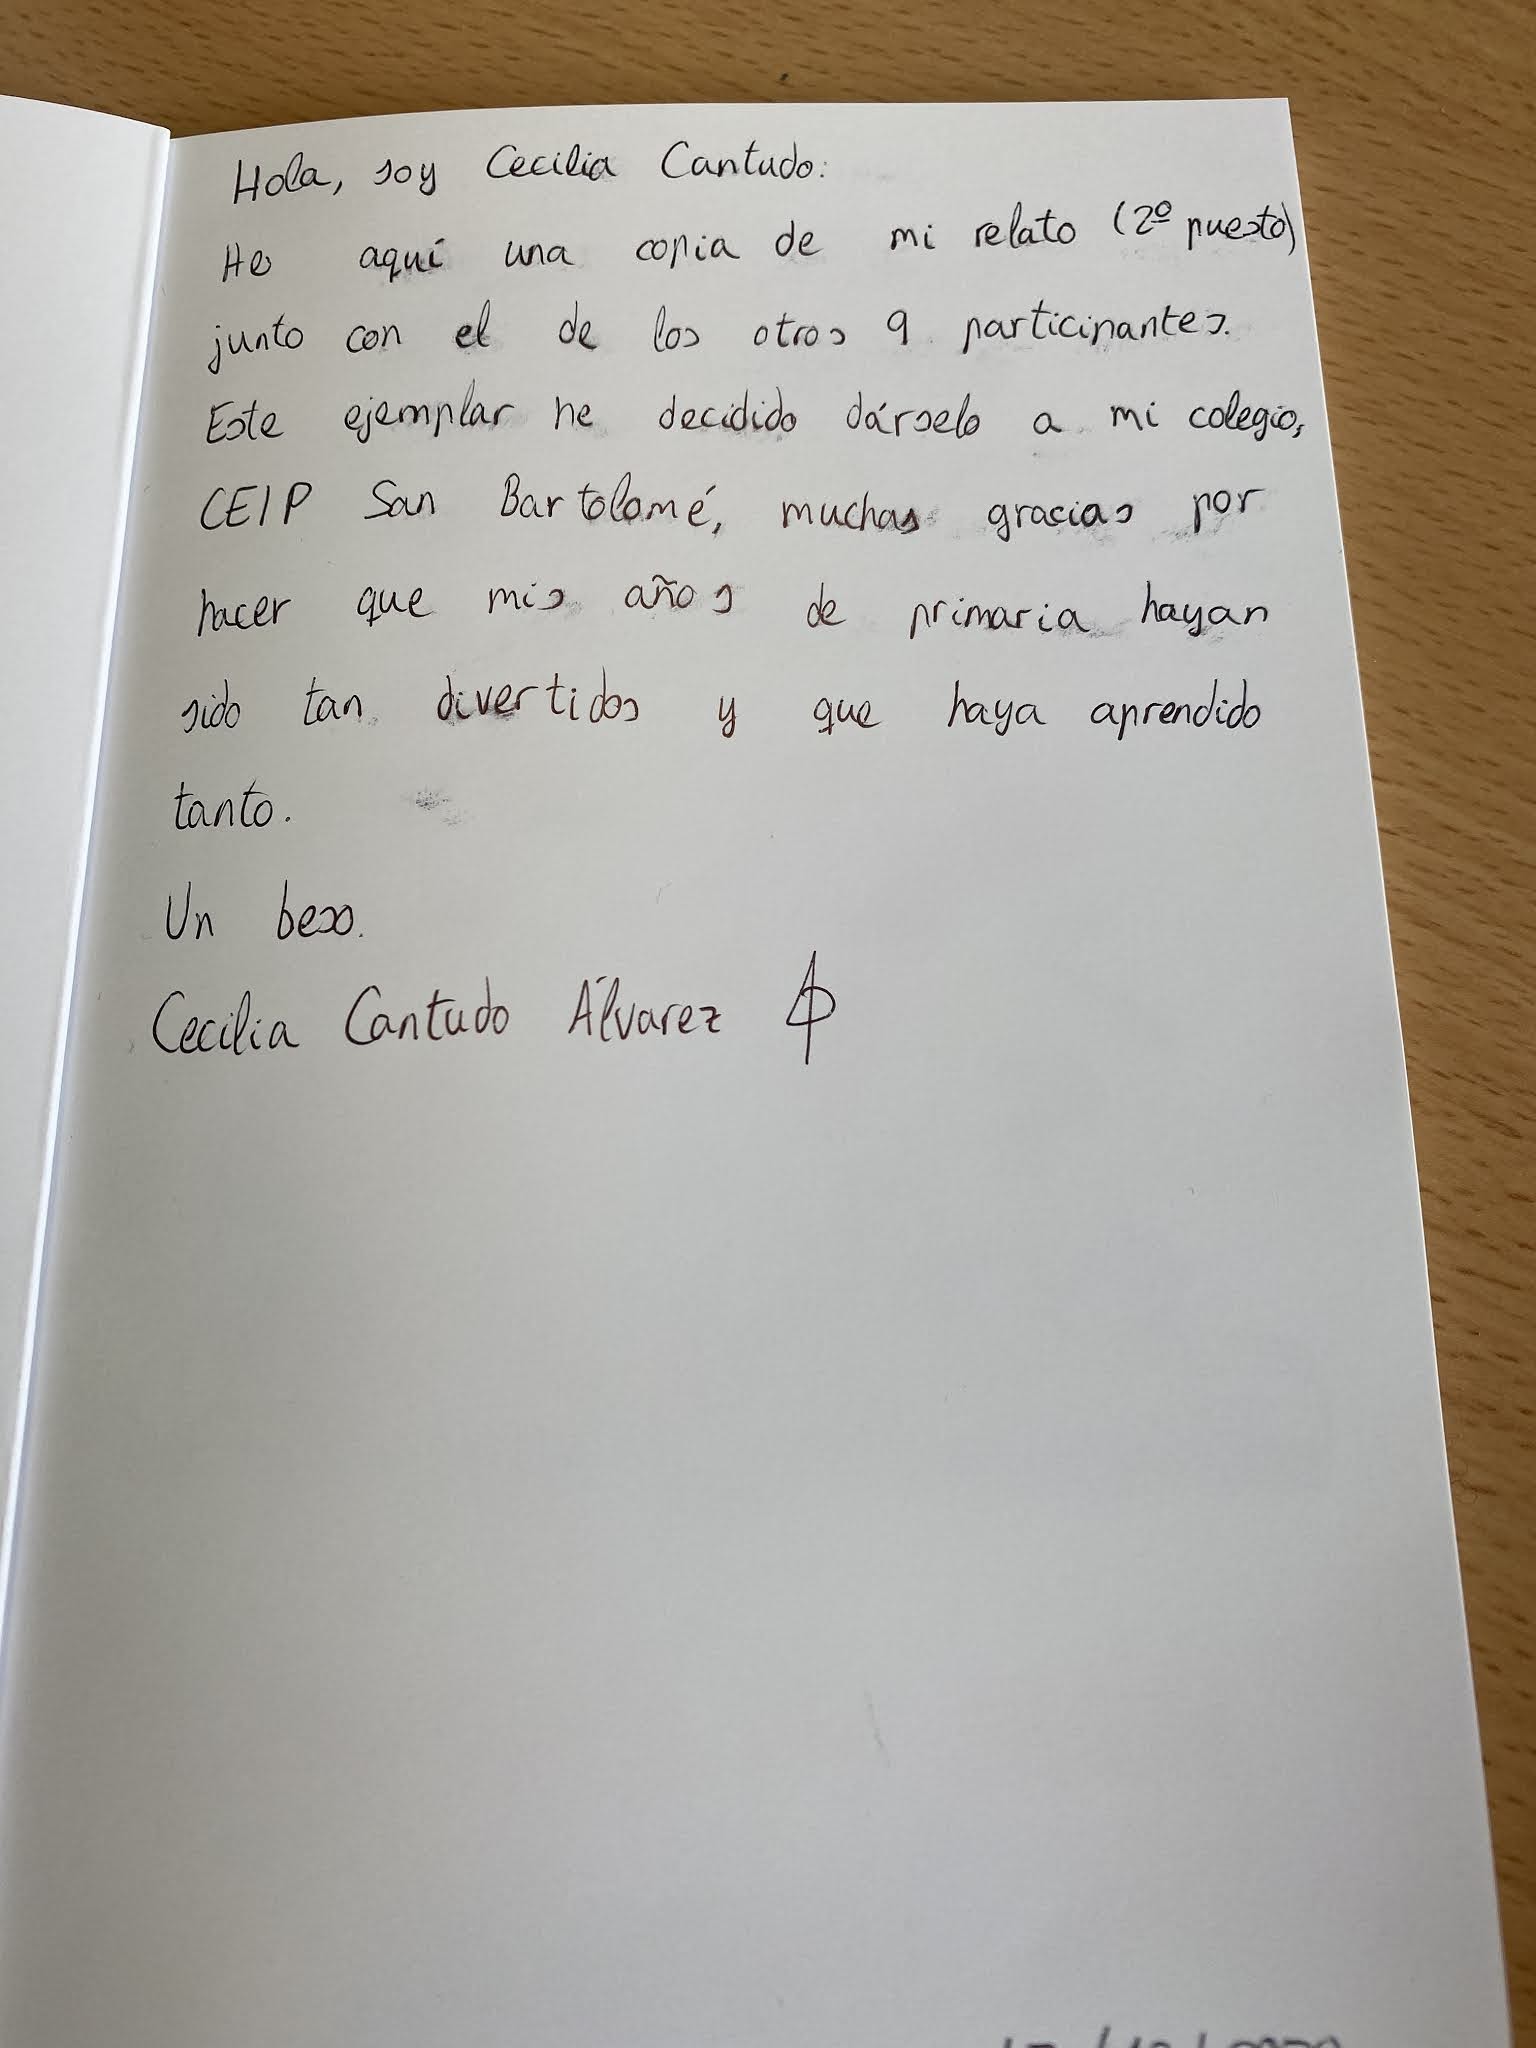 Hola, soy Cecilia Cantudo:
He aquí una copia de mi relato (2º puesto)
junto con el de los otros 9 participantes.
Este ejemplar he decidido dárselo a mi colegio,
CEIP San Bartolomé, muchas gracias por
hacer que mis años de primaria hayan
sido tan divertidos y que haya aprendido
tanto.
Un beso.
Cecilia Cantudo Álvarez